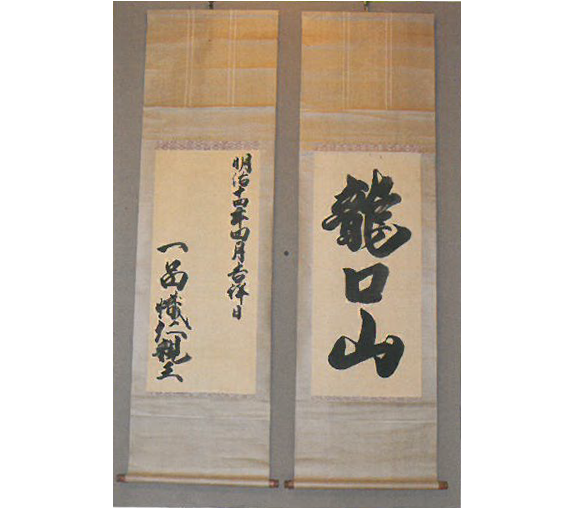 龍口山
明治十四年四月吉祥日
一品幟仁親王